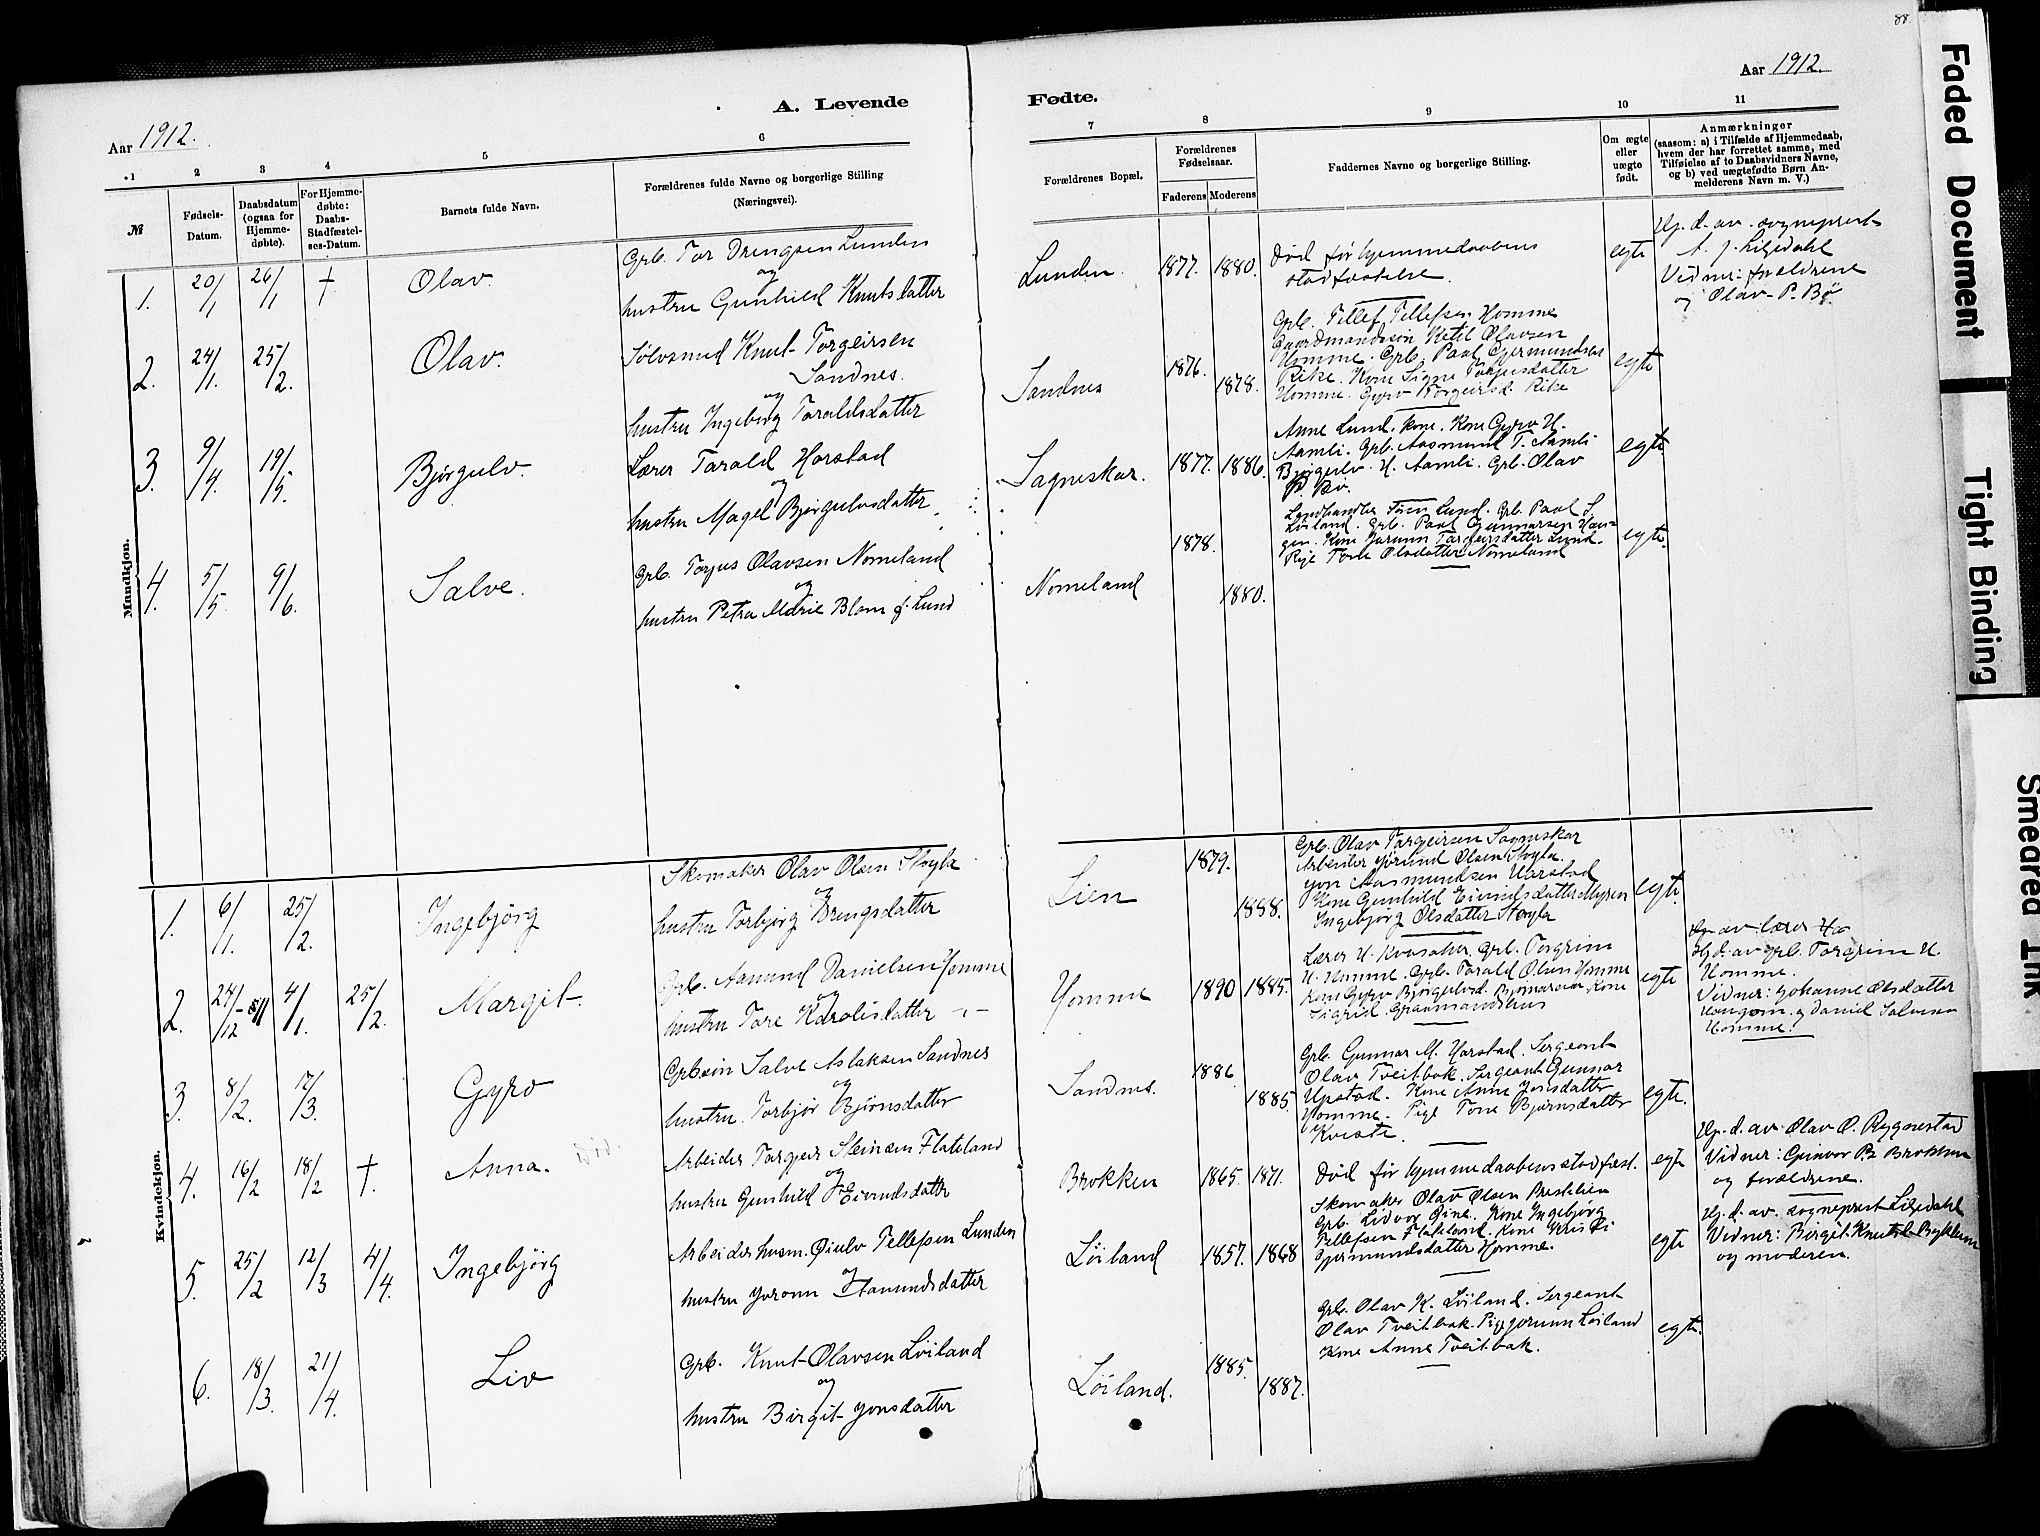 88
Aar 1912.
A. Levende
Aar 1912.
Fødte.
1
2
3
4
5
6
7
8
9
10
11
№
Fødsels-
Datum.
Daabsdatum
(ogsaa for
Hjemme-
døbte).
For Hjemme-
døbte:
Daabs-
Stadfæstel-
ses-Datum.
Barnets fulde Navn.
Forældrenes fulde Navne og borgerlige Stilling
(Næringsvei).
Forældrenes Bopæl.
Forældrenes
Fødselsaar.
Faderens
Moderens
Faddernes Navne og borgerlige Stilling.
Om ægte
eller
uægte
født.
Anmærkninger
(saasom: a) i Tilfælde af Hjemmedaab,
hvem der har forrettet samme, med
Tilføielse af to Daabsvidners Navne,
og b) ved uægtefødte Børn An-
melderens Navn m. V.)
Mandkjøn.
1.
20/1
26/1
+
Olav.
Grb. Tor Drengsen Lunden
og
hustru Gunhild Knutsdatter
Lunden.
1877.
1880.
Død før hjemmedaabens
stadfæstelse.
egte
Hj. d. av. sogneprest
A. J. Liljedahl
Vidner: forældrene
og Olav P. Bø
2.
24/1.
25/2.
Olav.
Sølvsmed Knut Torgeirsen
Sandnes.
og
hustru Ingeborg Taraldsdatter
Sandnes
1876.
1878.
Grb. Tellef Tellefsen Homme
Gaardmandssøn Ketil Olavsen
Homme. Grb. Paal Gjermundsen
Rike. Kone Signe Torjusdatter
Homme. Gyro Torgeirsd. Rike
egte
3.
9/4.
19/5.
Bjørgulv.
Lærer Tarald Horstad
og
hustru Magel Bjørgulvsdatter
Sagneskar.
1877.
1886.
Anne Lund. kone. Kone Gyro H.
Aamli. Grb. Aasmund T. Aamli
Bjørgulv H. Aamli. Grb. Olav
P. Bø.
egte
4.
5/5.
9/6.
Salve.
Grb. Torjus Olavsen Nomeland
og
hustru Petra Marie Blom f. Lund
Nomeland
1878.
1880.
Landhandler Lund. Grb. Paal S.
Løiland. Grb. Paal Gunnarsen Hau-
gen. Kone Jorunn Targeirsdatter Lund.
Pige Tone Olsdatter Nomeland
egte.
Kvindekjøn.
1.
6/1.
25/2.
Ingebjørg
Skomaker Olav Olsen Støyla
og
hustru Torbjørg Drengsdatter
Lien
1879.
1888.
Grb. Olav Targeirsen Sagneskar
Arbeider Jørund Olsen Støyla.
Jon Aasmundsen Harstad
Kone Gunhild Eivindsdatter Myren
Ingebjørg Olsdatter Støyla
egte
2.
24/12-
4/1.
25/2.
Margit.
Grb. Aamund Danielsen Homme
og
hustru Tore Karolisdatter -"-
Homme
1890
1885.
Lærer H. Kvasaker. Grb. Torgrim
H. Homme. Grb. Tarald Olsen Homme
Kone Gyro Bjørgulvsd. Bjørnaraa. Kone
Sigrid
egte
av lærer
Hj. d. av grb. Torgrim H.
Homme.
Vidner: Johanne Olsdatter
Daniel Salvesen
Homme.
3.
8/2.
17/3.
Gyro
Grb.søn Salve Aslaksen Sandnes
og
hustru. Torbjør Bjørnsdatter
Sandnes.
1886
1885.
Grb. Gunnar M. Harstad. Sergeant
Olav Tveitbak. Sergeant Gunnar
Upstad. Kone Anne Jonsdatter
Homme. Pige Tone Bjørnsdatter
Kviste.
egte.
4.
16/2
18/2
+.
Anna.
Arbeider Targeir Steinsen Flateland
og
hustru Gunhild Eivindsdatter
Brokken
1865.
1871.
Død før hjemmedaabens stadfæst.
egte
Hj. d. av Olav O. Rygnestad
Vidner: Gunvor P. Brokken
og forældrene.
5.
25/2
12/3
4/4.
Ingebjørg
Arbeider husm. Øiulv Tellefsen Lunden
og
hustru Joronn Aamundsdatter
Løiland
1857.
1868
Skomaker Olav Olsen Brestelien
Grb. Lidvor Øine. Kone Ingebjørg
Tellefsen Flateland. Kone Kristi
Gjermundsdatter Homme.
egte
Hj. d. av. sogneprest Liljedahl
Vidner: Birgit Knutsd. Bykllum
og moderen.
6.
18/3.
21/4.
Liv
Grb. Knut Olavsen Løiland
og
hustru Birgit Jonsdatter
Løiland.
1885.
1887.
Grb. Olav K. Løiland. Sergeant
Olav Tveitbak. Pige Jorunn Løiland
Kone Anne Tveitbak.
egte.
Faded Document
Tight Binding
Smeared Ink